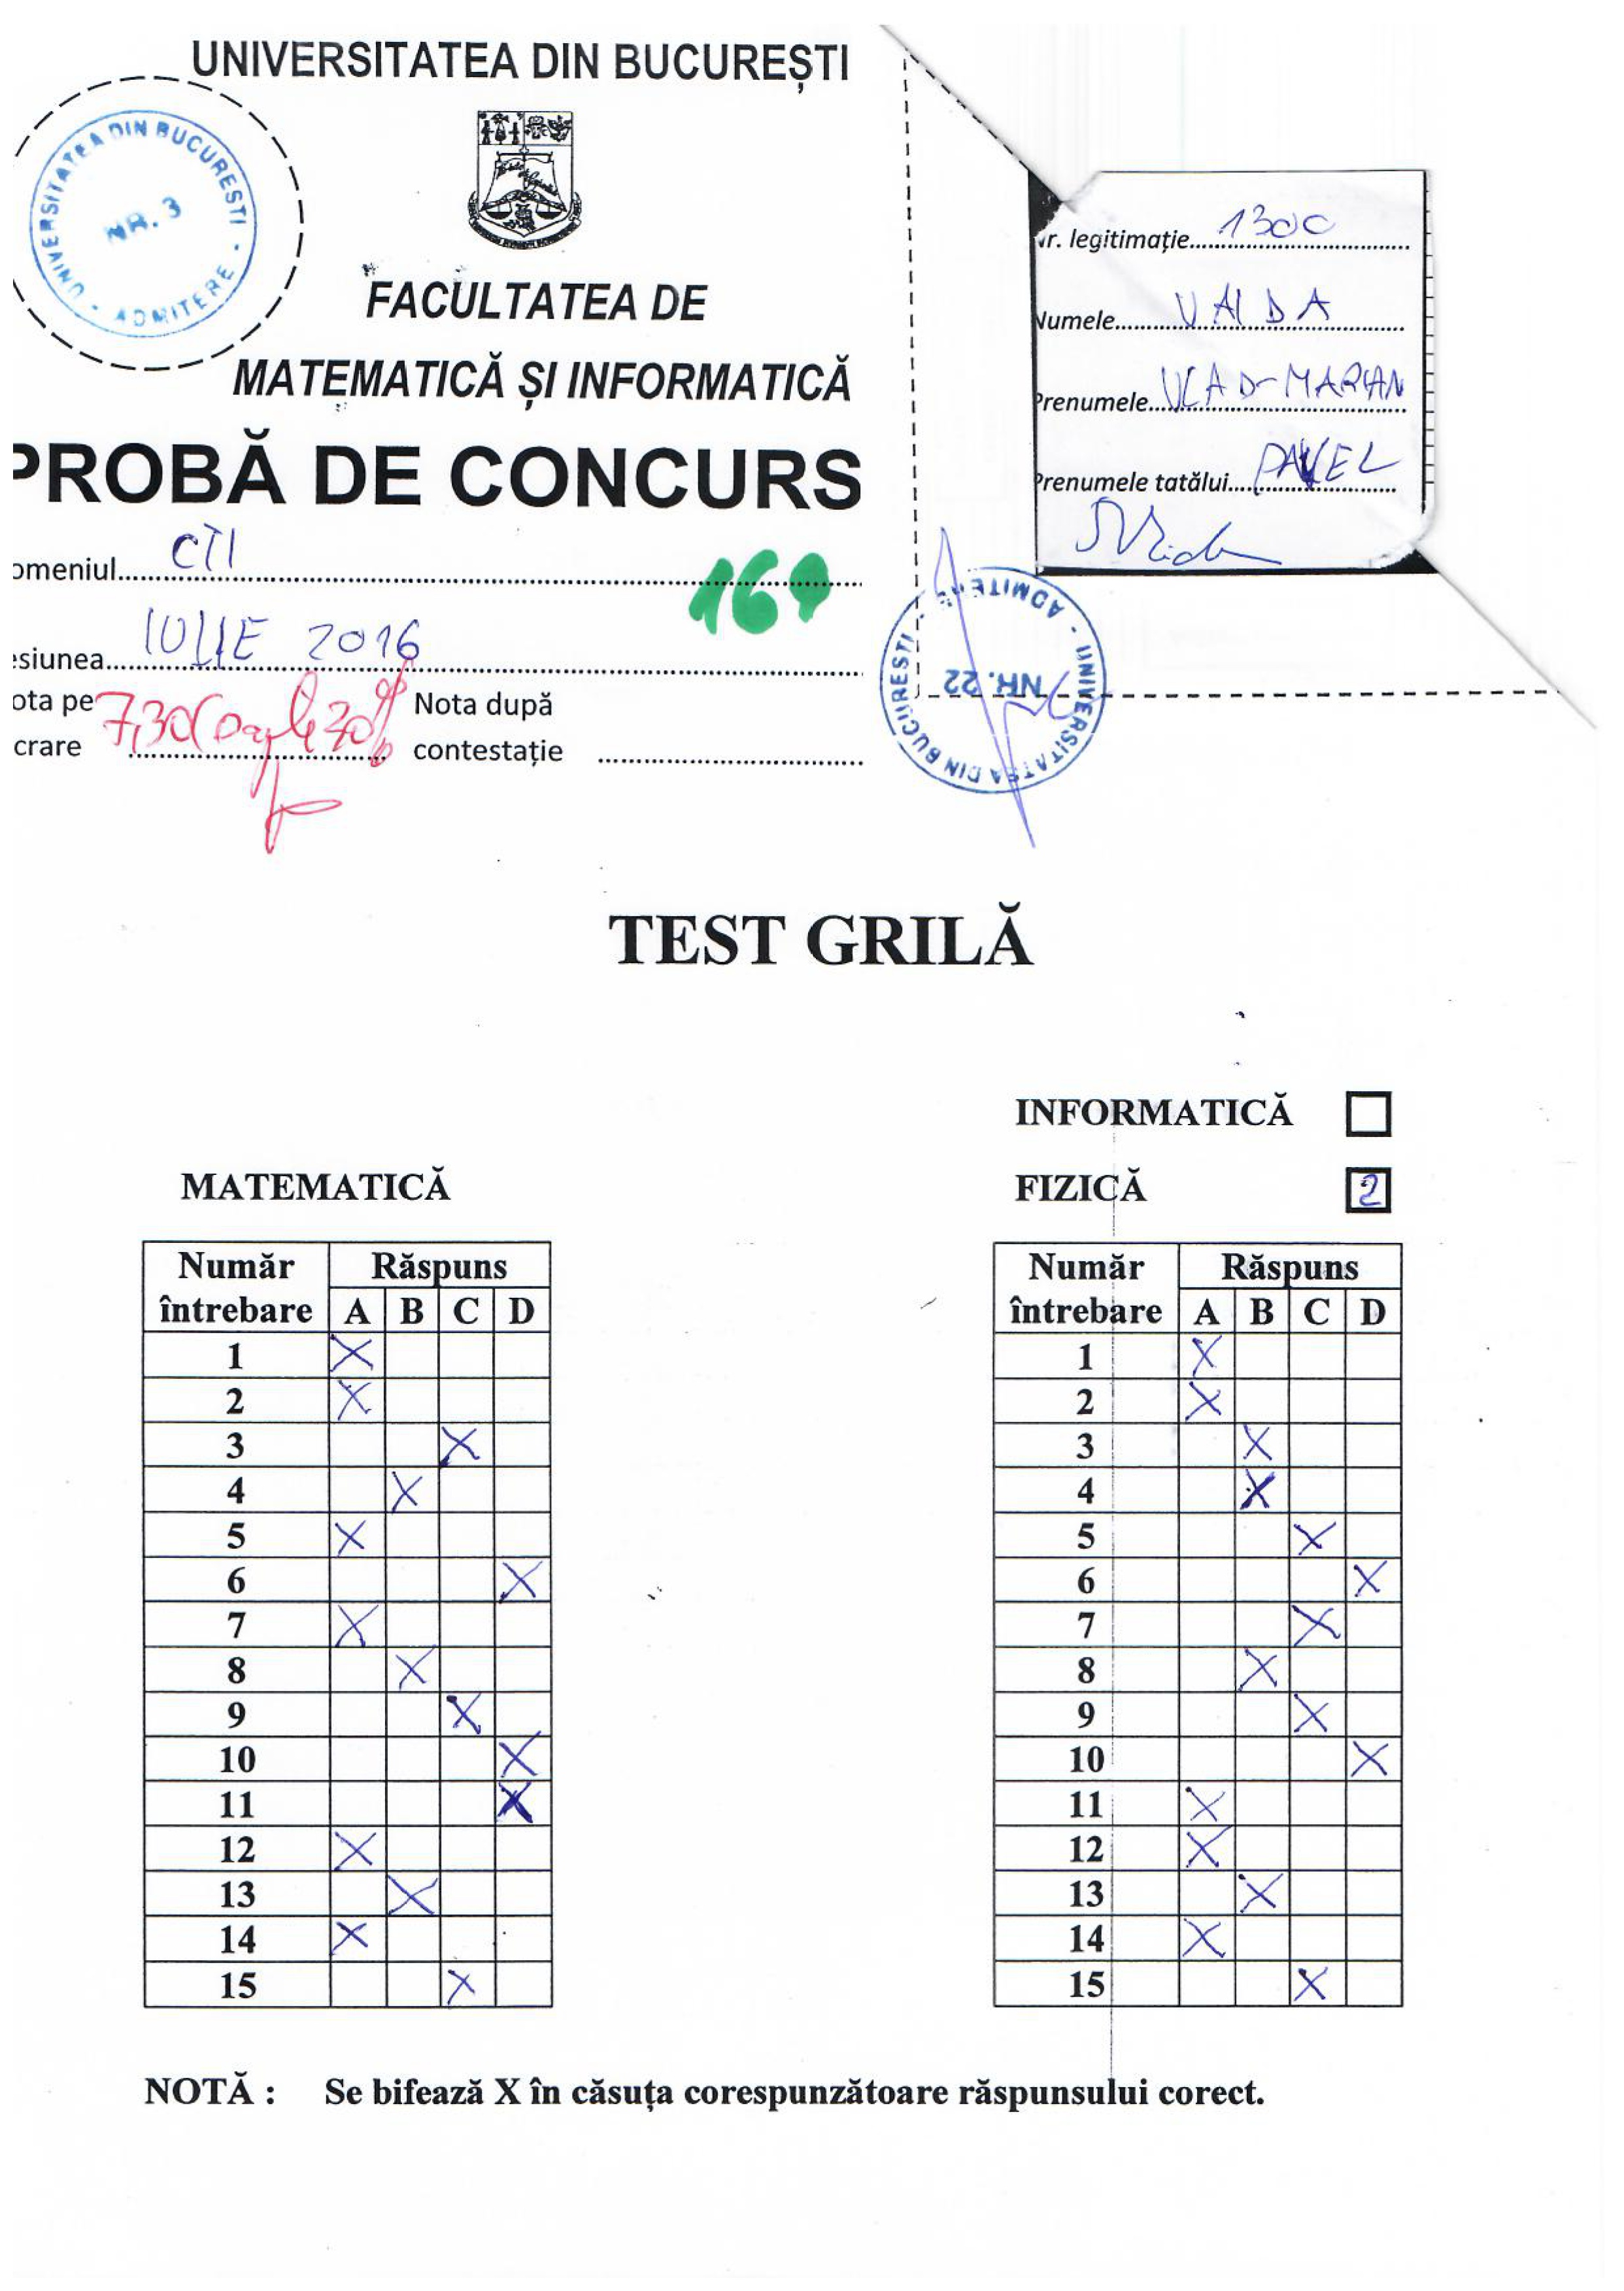 UNIVERSITATEA DIN BUCUREȘTI
UNIVERSITATEA DIN BUCURESTI - ADMITERE -
NR. 3
FACULTATEA DE
MATEMATICĂ ȘI INFORMATICĂ
PROBĂ DE CONCURS
omeniul CTI
169
esiunea IULIE 2016
ota pe
crare 7,30
Nota după
contestație
Nr. legitimație 1300
Numele VALDA
Prenumele VLAD-MARIAN
Prenumele tatălui PAVEL
UNIVERSITATEA DIN BUCURESTI - ADMITERE -
NR. 22
TEST GRILĂ
INFORMATICĂ
FIZICĂ 2
MATEMATICĂ
Număr întrebare Răspuns
A B C D
1 X
2 X
3 X
4 X
5 X
6 X
7 X
8 X
9 X
10 X
11 X
12 X
13 X
14 X
15 X
Număr întrebare Răspuns
A B C D
1 X
2 X
3 X
4 X
5 X
6 X
7 X
8 X
9 X
10 X
11 X
12 X
13 X
14 X
15 X
NOTĂ : Se bifează X în căsuța corespunzătoare răspunsului corect.